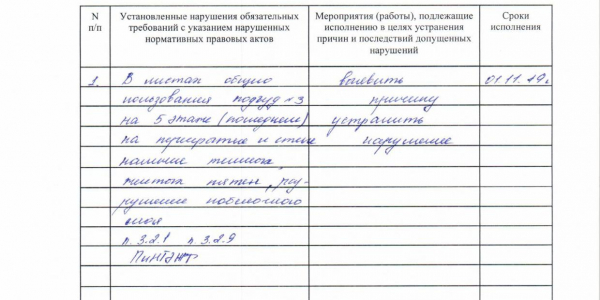 N п/п
Установленные нарушения обязательных требований с указанием нарушенных нормативных правовых актов
Мероприятия (работы), подлежащие исполнению в целях устранения причин и последствий допущенных нарушений
Сроки исполнения
1. В местах общего выявить 01.11.19г.
пользования подъезд №3 причину
на 5 этаже (последнем) устранить
на и стене нарушение
наличие
желтых пятен, раз-
рушение побелочного
слоя
п. 3.2.1 п. 3.2.9
ПиНТЭЖФ